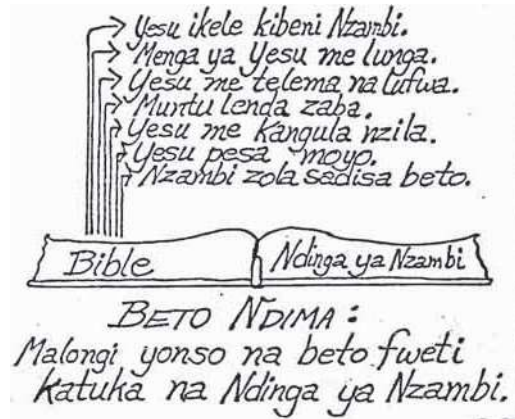 Yesu ikele kibeni Nzambi.
Menga ya Yesu me lunga.
Yesu me telema na lufwa.
Muntu lenda zaba.
Yesu me kangula nzila.
Yesu pesa moyo.
Nzambi zola sadisa beto.
Bible
Ndinga ya Nzambi
BETO NDIMA:
Malongi yonso na beto fweti
katuka na Ndinga ya Nzambi.